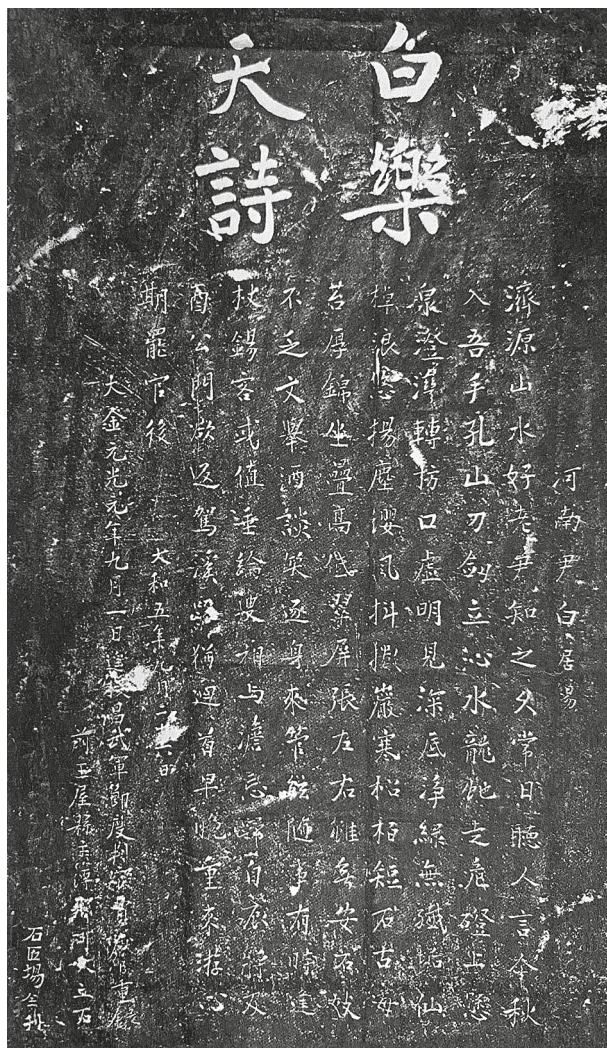 白樂
天詩
河南尹白居易
濟源山水好老尹知之久常日聽人言今秋
入吾手孔山刃劍立沁水龍虵走危磴上懸
泉澄灣轉枋口虛明見深底淨綠無纖垢仙
棹浪悠揚塵纓風抖擻巖寒松柏短石古莓
苔厚錦坐疊高低翠屏張左右雖無安石妓
不乏文舉酒談笑逐身來管絃隨事有時逢
杖錫客或值垂綸叟相與澹忘歸自辰將及
酉公門欲返駕溪路猶迴首早晚重來游心
期罷官後 大和五年九月 日
大金元光元年九月一日 昌武軍節度判官 重錄
前王屋縣 立石
石匠 刊